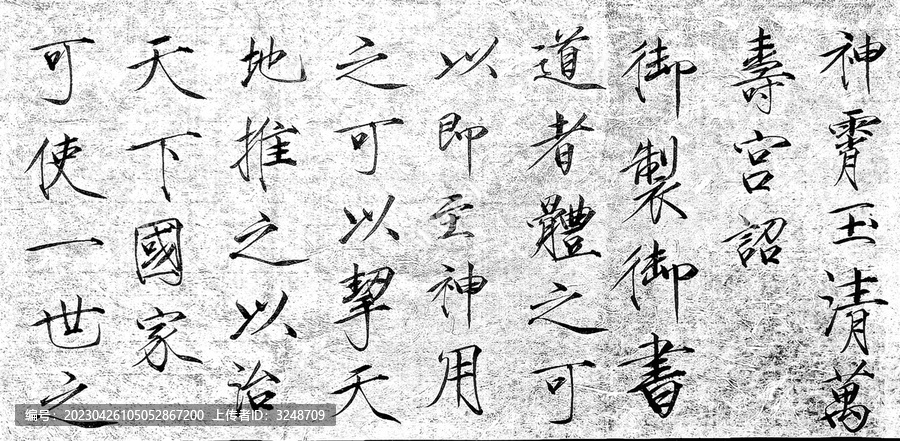 神霄玉清萬
壽宮詔
御製御書
道者體之可
以即至神用
之可以挈天
地推之以治
天下國家
可使一世之
编号：20230426105052867200 上传者ID：3248709